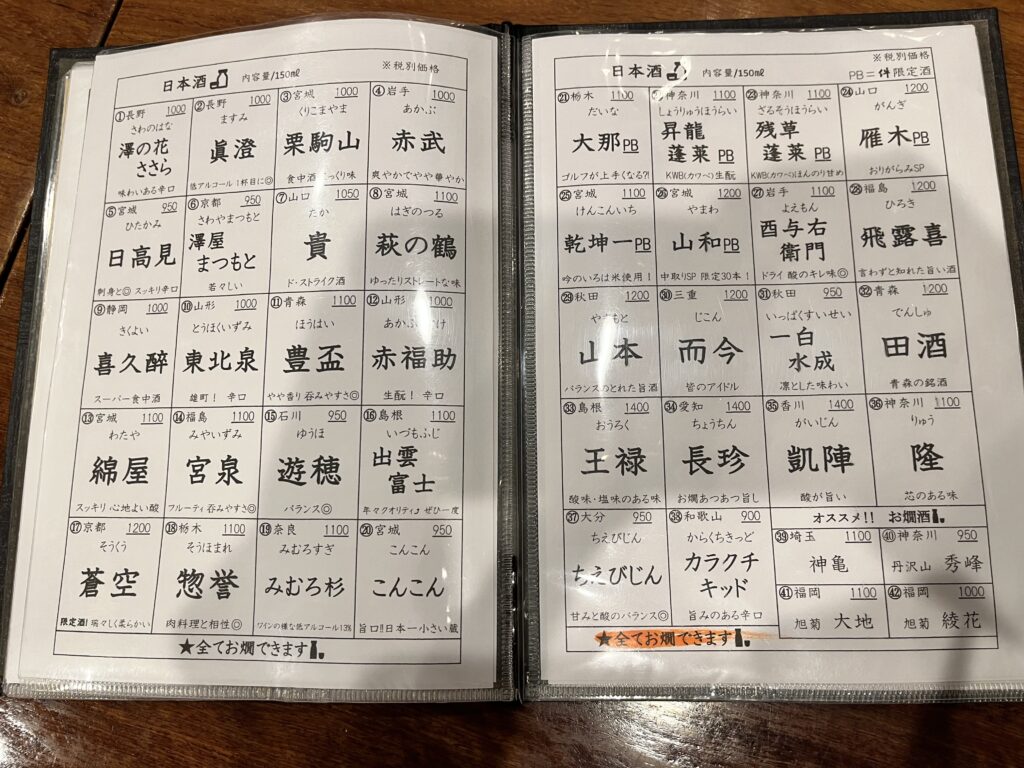 日本酒 内容量/150ml ※税別価格
①長野 1000
さわのはな
澤の花
ささら
味わいある辛口
②長野 1000
ますみ
眞澄
低アルコール1杯目に◎
③宮城 1000
くりこまやま
栗駒山
④岩手 1000
あかぶ
赤武
爽やかでやや華やか
⑤宮城 950
ひたかみ
日高見
刺身と◎ スッキリ辛口
⑥京都 950
さわやまつもと
澤屋
まつもと
若々しい
⑦山口 1050
たか
貴
ド・ストライク酒
⑧宮城 1000
はぎのつる
萩の鶴
ゆったりストレートな味
⑨静岡 1000
きくよい
喜久醉
スーパー食中酒
⑩山形 1000
とうほくいずみ
東北泉
雄町! 辛口
⑪青森 1100
ほうはい
豊盃
やや香り 呑みやすさ◎
⑫山形 1000
赤福助
生酛! 辛口
⑬宮城 1100
わたや
綿屋
スッキリ 心地よい酸
⑭福島 1100
みやいずみ
宮泉
フルーティ 呑みやすさ◎
⑮石川 950
ゆうほ
遊穂
バランス◎
⑯島根 1100
いづもふじ
出雲
富士
年々クオリティ♪ ぜひ一度
⑰京都 1200
そうくう
蒼空
限定酒! 瑞々しく柔らかい
⑱栃木 1100
そうほまれ
惣誉
肉料理と相性◎
⑲奈良 1100
みむろすぎ
みむろ杉
ワインの様な低アルコール13%
⑳宮城 950
こんこん
こんこん
旨口!!日本一小さい蔵
★全てお燗できます
日本酒 内容量/150ml ※税別価格
PB=件限定酒
㉑栃木 1100
だいな
大那PB
ゴルフが上手くなる?!
㉒神奈川 1100
しょうりゅうほうらい
昇龍
蓬莱 PB
KWB(カワベ)生酛
㉓神奈川 1100
ざるそうほうらい
残草
蓬莱 PB
KWB(カワベ)ほんのり甘め
㉔山口 1200
がんぎ
雁木PB
おりがらみSP
㉕宮城 1100
けんこんいち
乾坤一PB
吟のいろは米使用!
㉖宮城 1200
やまわ
山和PB
中取りSP 限定30本!
㉗岩手 1100
よえもん
酉与右
衛門
ドライ 酸のキレ味◎
㉘福島 1200
ひろき
飛露喜
言わずと知れた旨い酒
㉙秋田 1200
やまもと
山本
バランスのとれた旨酒
㉚三重 1200
じこん
而今
皆のアイドル
㉛秋田 950
いっぱくすいせい
一白
水成
凛とした味わい
㉜青森 1200
でんしゅ
田酒
青森の銘酒
㉝島根 1400
おうろく
王禄
酸味・塩味のある味
㉞愛知 1400
ちょうちん
長珍
お燗あつあつ旨し
㉟香川 1400
がいじん
凱陣
酸が旨い
㊱神奈川 1100
りゅう
隆
芯のある味
㊲大分 950
ちえびじん
ちえびじん
甘みと酸のバランス◎
㊳和歌山 900
からくちきっど
カラクチ
キッド
旨みのある辛口
オススメ!! お燗酒
㊴埼玉 1100
神亀
㊵神奈川 950
丹沢山 秀峰
㊶福岡 1100
旭菊 大地
㊷福岡 1000
旭菊 綾花
★全てお燗できます